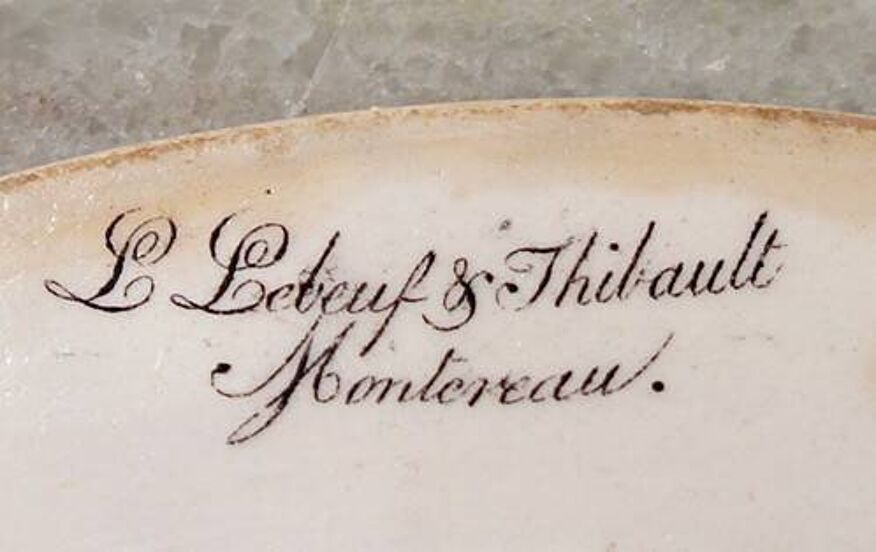 L Lebeuf & Thibault
Montereau.